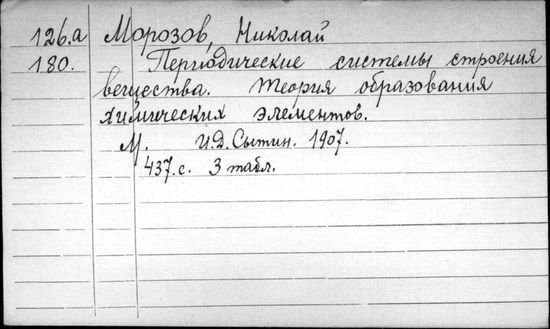 126.а Морозов, Николай
180. Периодические системы строения
вещества. Теория образования
химических элементов.
М. И.Д. Сытин. 1907.
437.с. 3 табл.